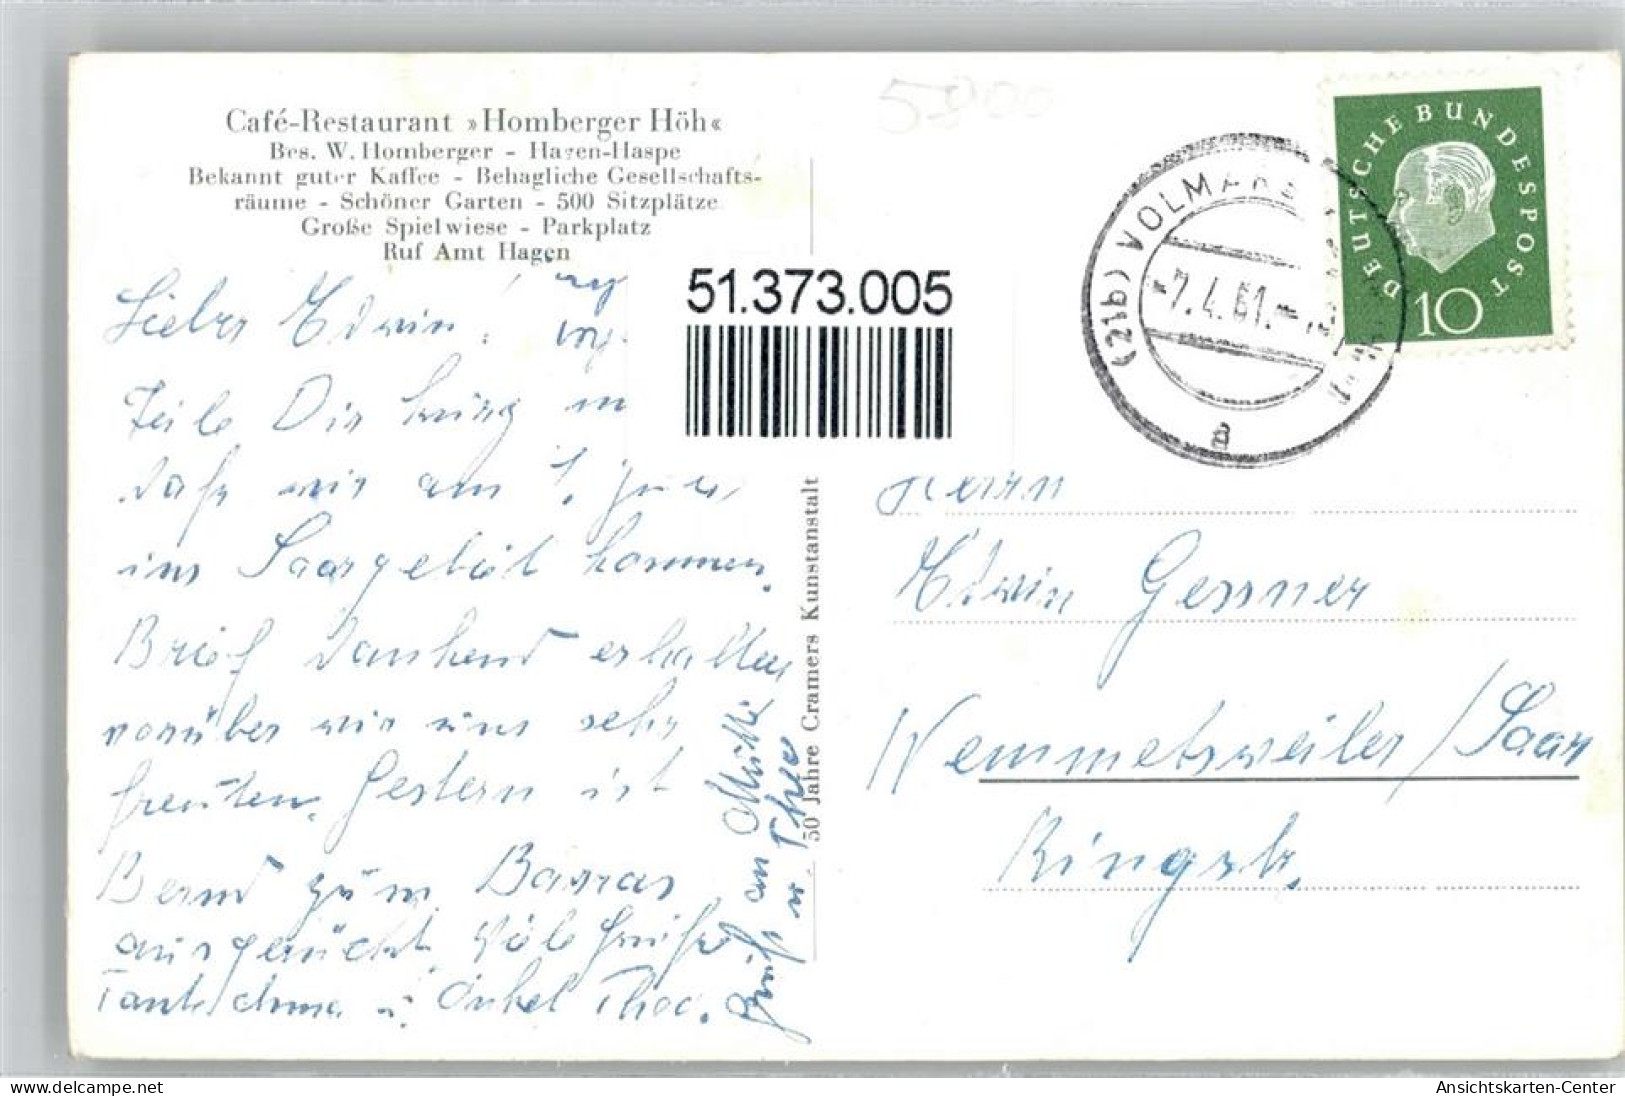 Café-Restaurant »Homberger Höh«
Bes. W. Homberger - Hagen-Haspe
Bekannt guter Kaffee - Behagliche Gesellschafts-
räume - Schöner Garten - 500 Sitzplätze
Große Spielwiese - Parkplatz
Ruf Amt Hagen
Lieber Edwin!
Teile Dir kurz m
daß wir am 1. Juli
ins Saargebiet kommen.
Brief dankend erhalten
worüber wir uns sehr
freuten. Gestern ist
Bernd zum Barras
ausgerückt. Viele Grüße
Tante Irma u. Onkel Theo.
Gruß an
u. Theo
50 Jahre Cramers Kunstanstalt
51.373.005
5800
(21b) VOLMAR
-7.4.61.-
a
DEUTSCHE BUNDESPOST
10
Herrn
Edwin Gessner
Wemmetsweiler/Saar
Ringstr.
delcampe.net
Ansichtskarten-Center